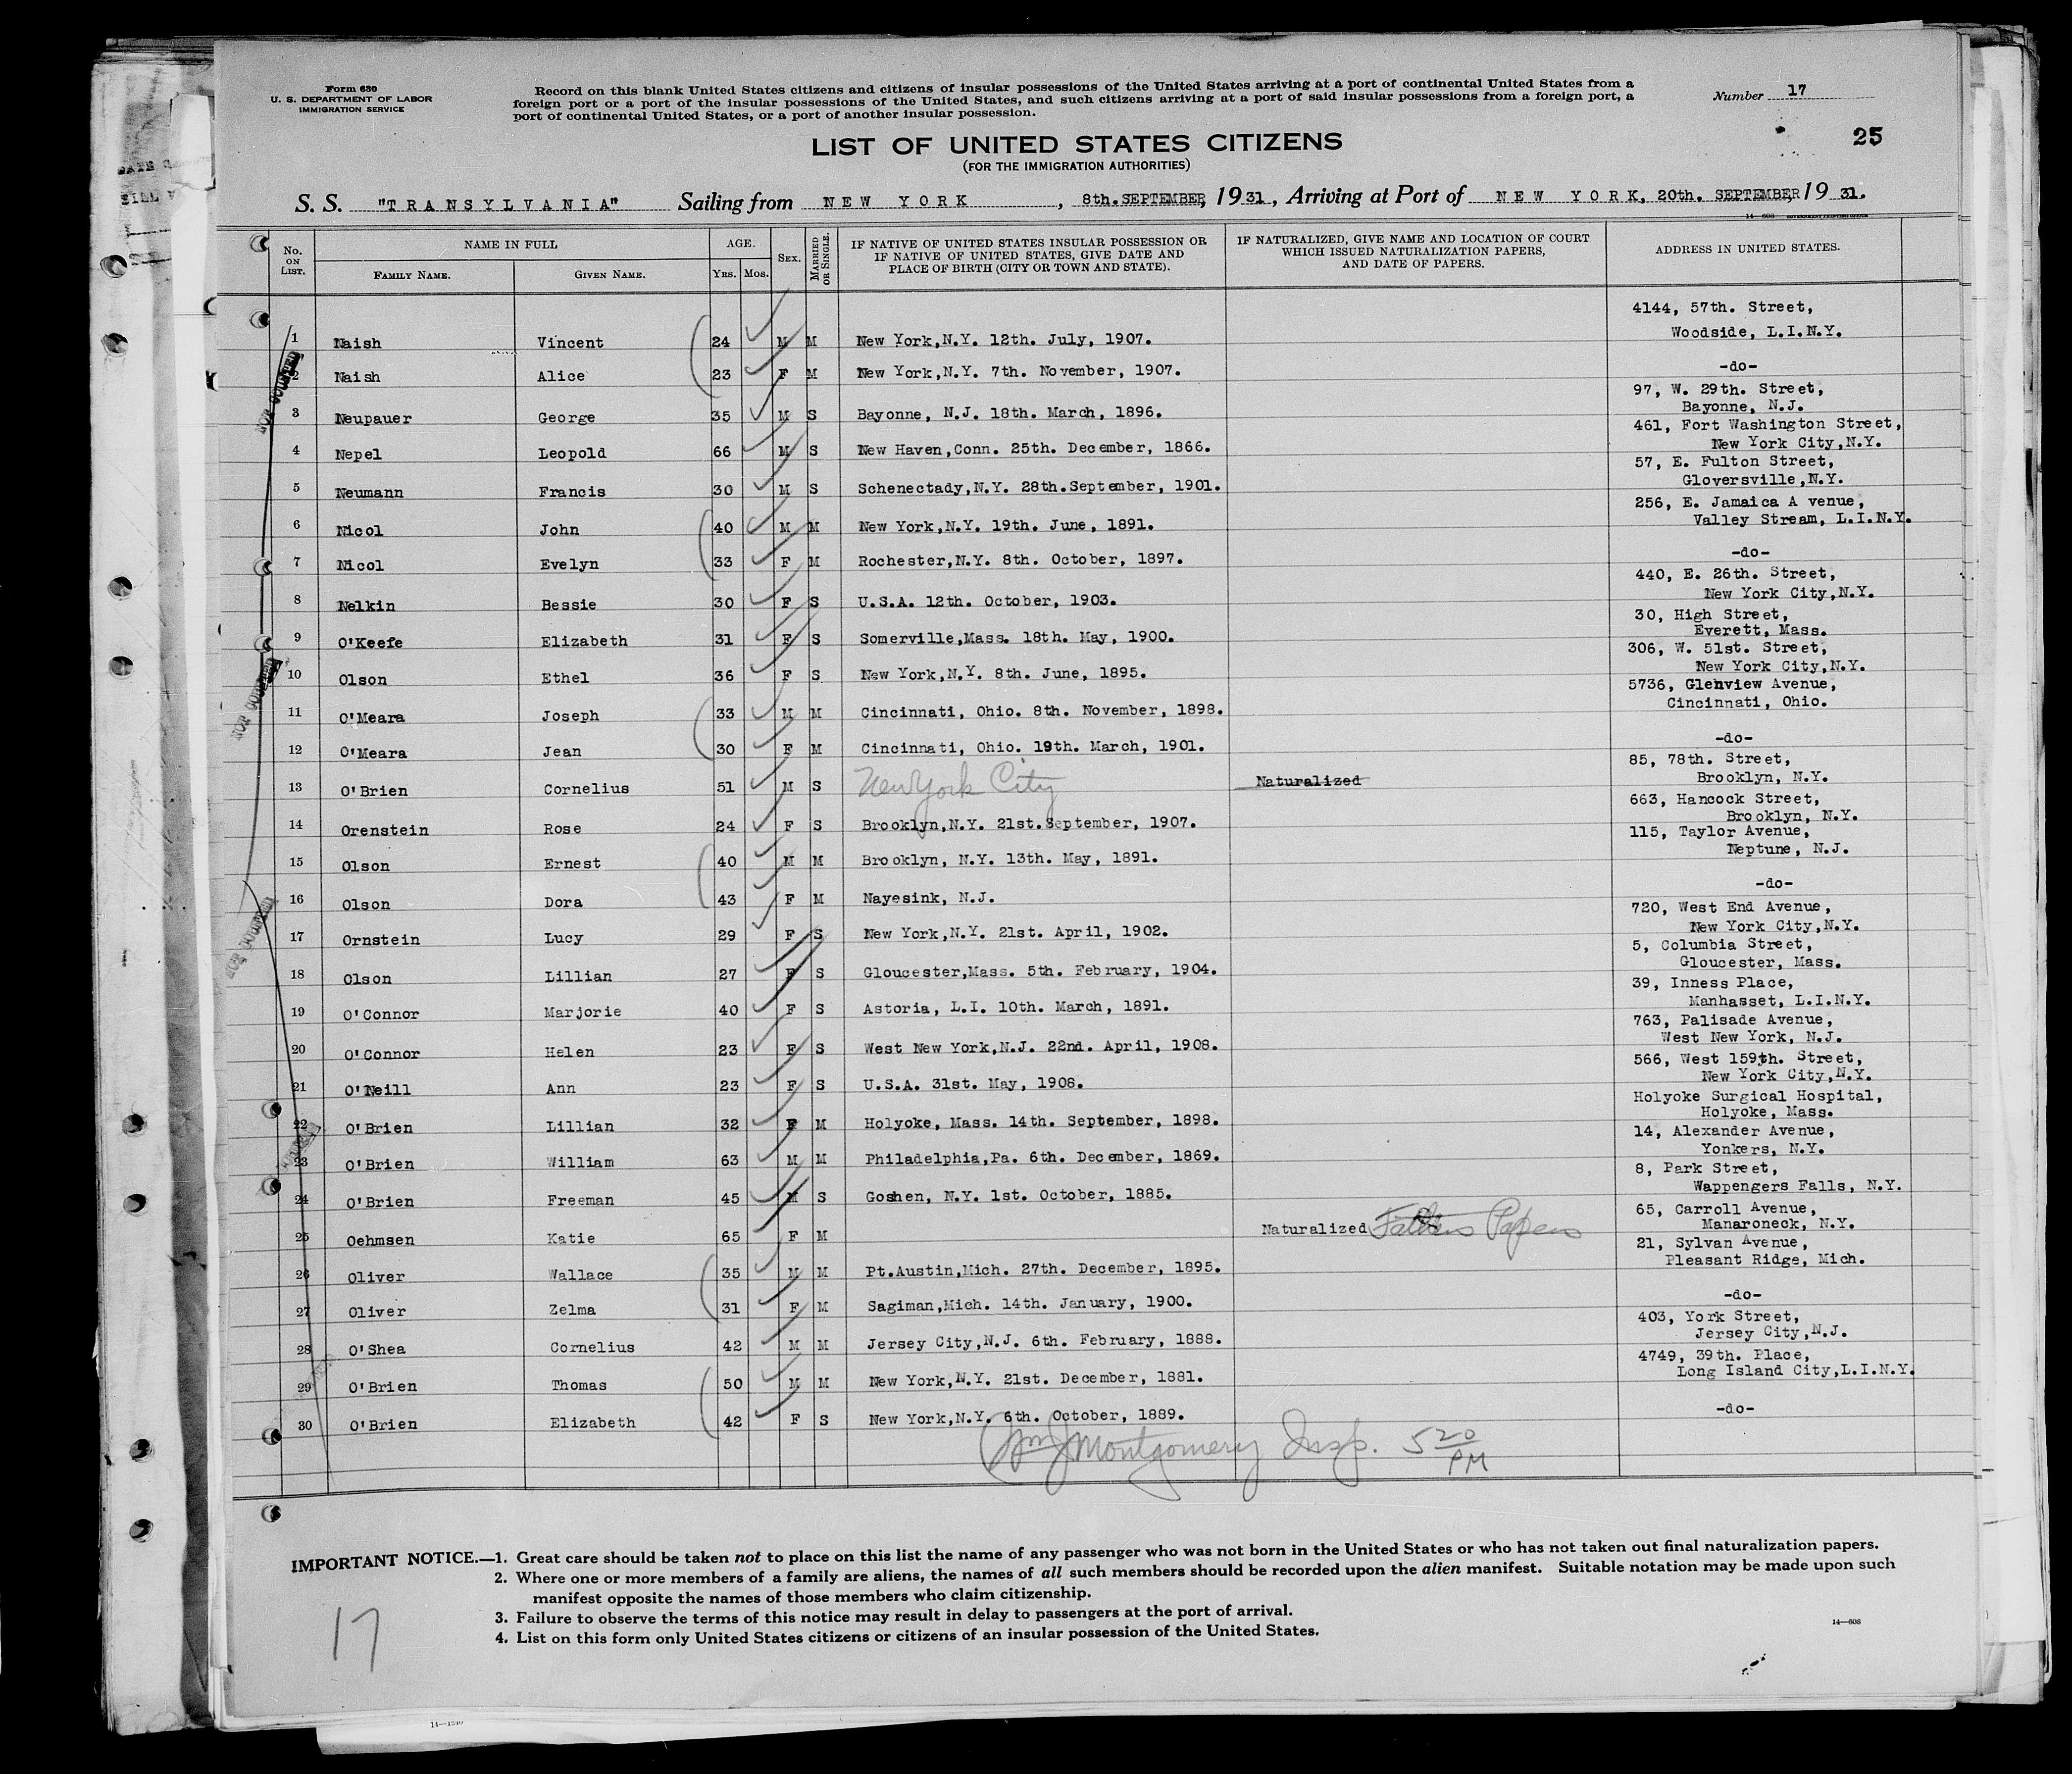 Form 630
U. S. DEPARTMENT OF LABOR
IMMIGRATION SERVICE
Record on this blank United States citizens and citizens of insular possessions of the United States arriving at a port of continental United States from a
foreign port or a port of the insular possessions of the United States, and such citizens arriving at a port of said insular possessions from a foreign port, a
port of continental United States, or a port of another insular possession.
Number 17
25
LIST OF UNITED STATES CITIZENS
(FOR THE IMMIGRATION AUTHORITIES)
S. S. "TRANSYLVANIA" Sailing from NEW YORK, 8th. SEPTEMBER, 1931, Arriving at Port of NEW YORK, 20th. SEPTEMBER 1931.
No. ON LIST. NAME IN FULL FAMILY NAME. GIVEN NAME. AGE. YRS. MOS. SEX. MARRIED OR SINGLE. IF NATIVE OF UNITED STATES INSULAR POSSESSION OR IF NATIVE OF UNITED STATES, GIVE DATE AND PLACE OF BIRTH (CITY OR TOWN AND STATE). IF NATURALIZED, GIVE NAME AND LOCATION OF COURT WHICH ISSUED NATURALIZATION PAPERS, AND DATE OF PAPERS. ADDRESS IN UNITED STATES.
1 Naish Vincent 24 M M New York,N.Y. 12th. July, 1907. 4144, 57th. Street, Woodside, L.I.N.Y.
2 Naish Alice 23 F M New York,N.Y. 7th. November, 1907. -do-
3 Neupauer George 35 M S Bayonne, N.J. 18th. March, 1896. 97, W. 29th. Street, Bayonne, N.J.
4 Nepel Leopold 66 M S New Haven,Conn. 25th. December, 1866. 461, Fort Washington Street, New York City,N.Y.
5 Neumann Francis 30 M S Schenectady,N.Y. 28th.September, 1901. 57, E. Fulton Street, Gloversville,N.Y.
6 Nicol John 40 M M New York,N.Y. 19th. June, 1891. 256, E. Jamaica A venue, Valley Stream, L.I.N.Y.
7 Nicol Evelyn 33 F M Rochester,N.Y. 8th. October, 1897. -do-
8 Nelkin Bessie 30 F S U.S.A. 12th. October, 1903. 440, E. 26th. Street, New York City,N.Y.
9 O'Keefe Elizabeth 31 F S Somerville,Mass. 18th. May, 1900. 30, High Street, Everett, Mass.
10 Olson Ethel 36 F S New York,N.Y. 8th. June, 1895. 306, W. 51st. Street, New York City,N.Y.
11 O'Meara Joseph 33 M M Cincinnati, Ohio. 8th. November, 1898. 5736, Glenview Avenue, Cincinnati, Ohio.
12 O'Meara Jean 30 F M Cincinnati, Ohio. 19th. March, 1901. -do-
13 O'Brien Cornelius 51 M S New York City Naturalized 85, 78th. Street, Brooklyn, N.Y.
14 Orenstein Rose 24 F S Brooklyn,N.Y. 21st.September, 1907. 663, Hancock Street, Brooklyn, N.Y.
15 Olson Ernest 40 M M Brooklyn, N.Y. 13th. May, 1891. 115, Taylor Avenue, Neptune, N.J.
16 Olson Dora 43 F M Nayesink, N.J. -do-
17 Ornstein Lucy 29 F S New York,N.Y. 21st. April, 1902. 720, West End Avenue, New York City,N.Y.
18 Olson Lillian 27 F S Gloucester,Mass. 5th. February, 1904. 5, Columbia Street, Gloucester, Mass.
19 O'Connor Marjorie 40 F S Astoria, L.I. 10th. March, 1891. 39, Inness Place, Manhasset, L.I.N.Y.
20 O'Connor Helen 23 F S West New York,N.J. 22nd. April, 1908. 763, Palisade Avenue, West New York, N.J.
21 O'Neill Ann 23 F S U.S.A. 31st. May, 1908. 566, West 159th. Street, New York City,N.Y.
22 O'Brien Lillian 32 F M Holyoke, Mass. 14th. September, 1898. Holyoke Surgical Hospital, Holyoke, Mass.
23 O'Brien William 63 M M Philadelphia,Pa. 6th. December, 1869. 14, Alexander Avenue, Yonkers, N.Y.
24 O'Brien Freeman 45 M S Goshen, N.Y. 1st. October, 1885. 8, Park Street, Wappengers Falls, N.Y.
25 Oehmsen Katie 65 F M Naturalized Fathers Papers 65, Carroll Avenue, Manaroneck, N.Y.
26 Oliver Wallace 35 M M Pt.Austin,Mich. 27th. December, 1895. 21, Sylvan Avenue, Pleasant Ridge, Mich.
27 Oliver Zelma 31 F M Sagiman,Mich. 14th. January, 1900. -do-
28 O'Shea Cornelius 42 M M Jersey City,N.J. 6th. February, 1888. 403, York Street, Jersey City,N.J.
29 O'Brien Thomas 50 M M New York,N.Y. 21st. December, 1881. 4749, 39th. Place, Long Island City,L.I.N.Y.
30 O'Brien Elizabeth 42 F S New York,N.Y. 6th. October, 1889. -do-
Wm J Montgomery Insp. 5 20 PM
IMPORTANT NOTICE.—1. Great care should be taken not to place on this list the name of any passenger who was not born in the United States or who has not taken out final naturalization papers.
2. Where one or more members of a family are aliens, the names of all such members should be recorded upon the alien manifest. Suitable notation may be made upon such
manifest opposite the names of those members who claim citizenship.
3. Failure to observe the terms of this notice may result in delay to passengers at the port of arrival.
4. List on this form only United States citizens or citizens of an insular possession of the United States.
14—608
17
14—1240